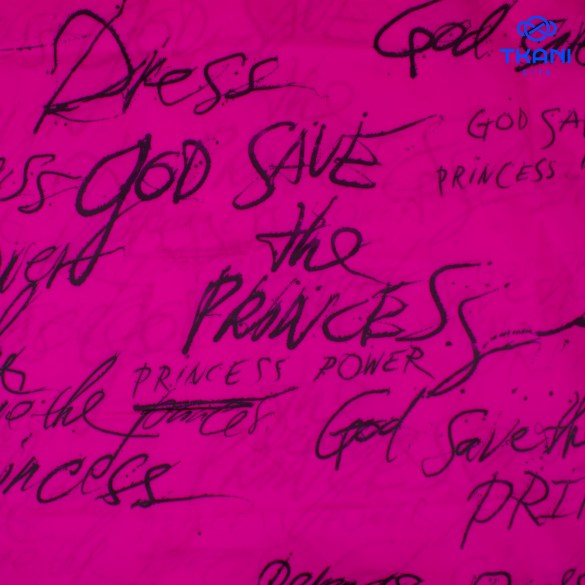 Dress
God
TKANI
GOD SA
PRINCESS
GOD SAVE
the
PRINCESS
PRINCESS POWER
the princess
God Save th
PRI
ncess